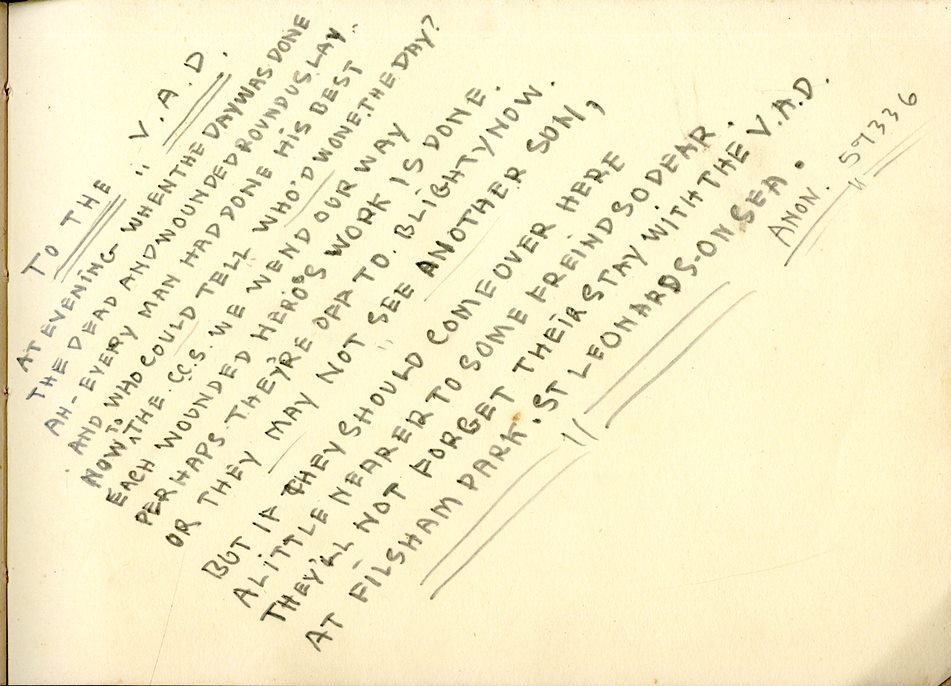 TO THE V.A.D.
AT EVENING WHEN THE DAY WAS DONE
THE DEAD AND WOUNDED ROUND US LAY.
AH - EVERY MAN HAD DONE HIS BEST
AND WHO COULD TELL WHO'D WONE THE DAY?
NOW TO THE C.C.S. WE WEND OUR WAY
EACH WOUNDED HERO'S WORK IS DONE.
PERHAPS THEY'RE OFF TO. BLIGHTY NOW.
OR THEY MAY NOT SEE ANOTHER SUN,
BUT IF THEY SHOULD COME OVER HERE
A LITTLE NEARER TO SOME FREIND SO DEAR.
THEY'LL NOT FORGET THEIR STAY WITH THE V.A.D.
AT FILSHAM PARK. ST LEONARDS-ON SEA.
ANON. 597336